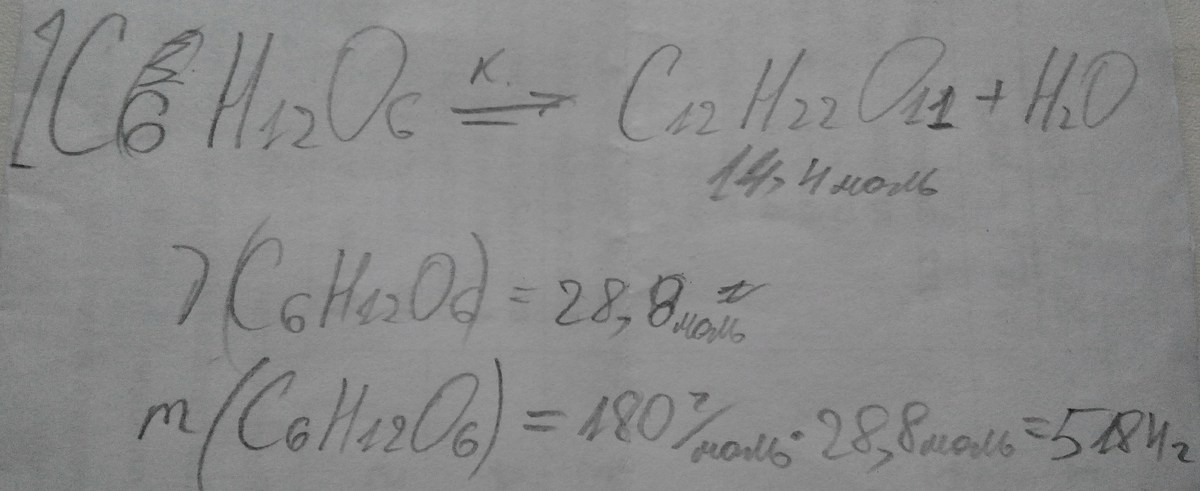 2C6H12O6 ⇌ к. C12H22O11 + H2O
14,4 моль
ν(C6H12O6) = 28,8 моль
m(C6H12O6) = 180 г/моль · 28,8 моль = 5184 г